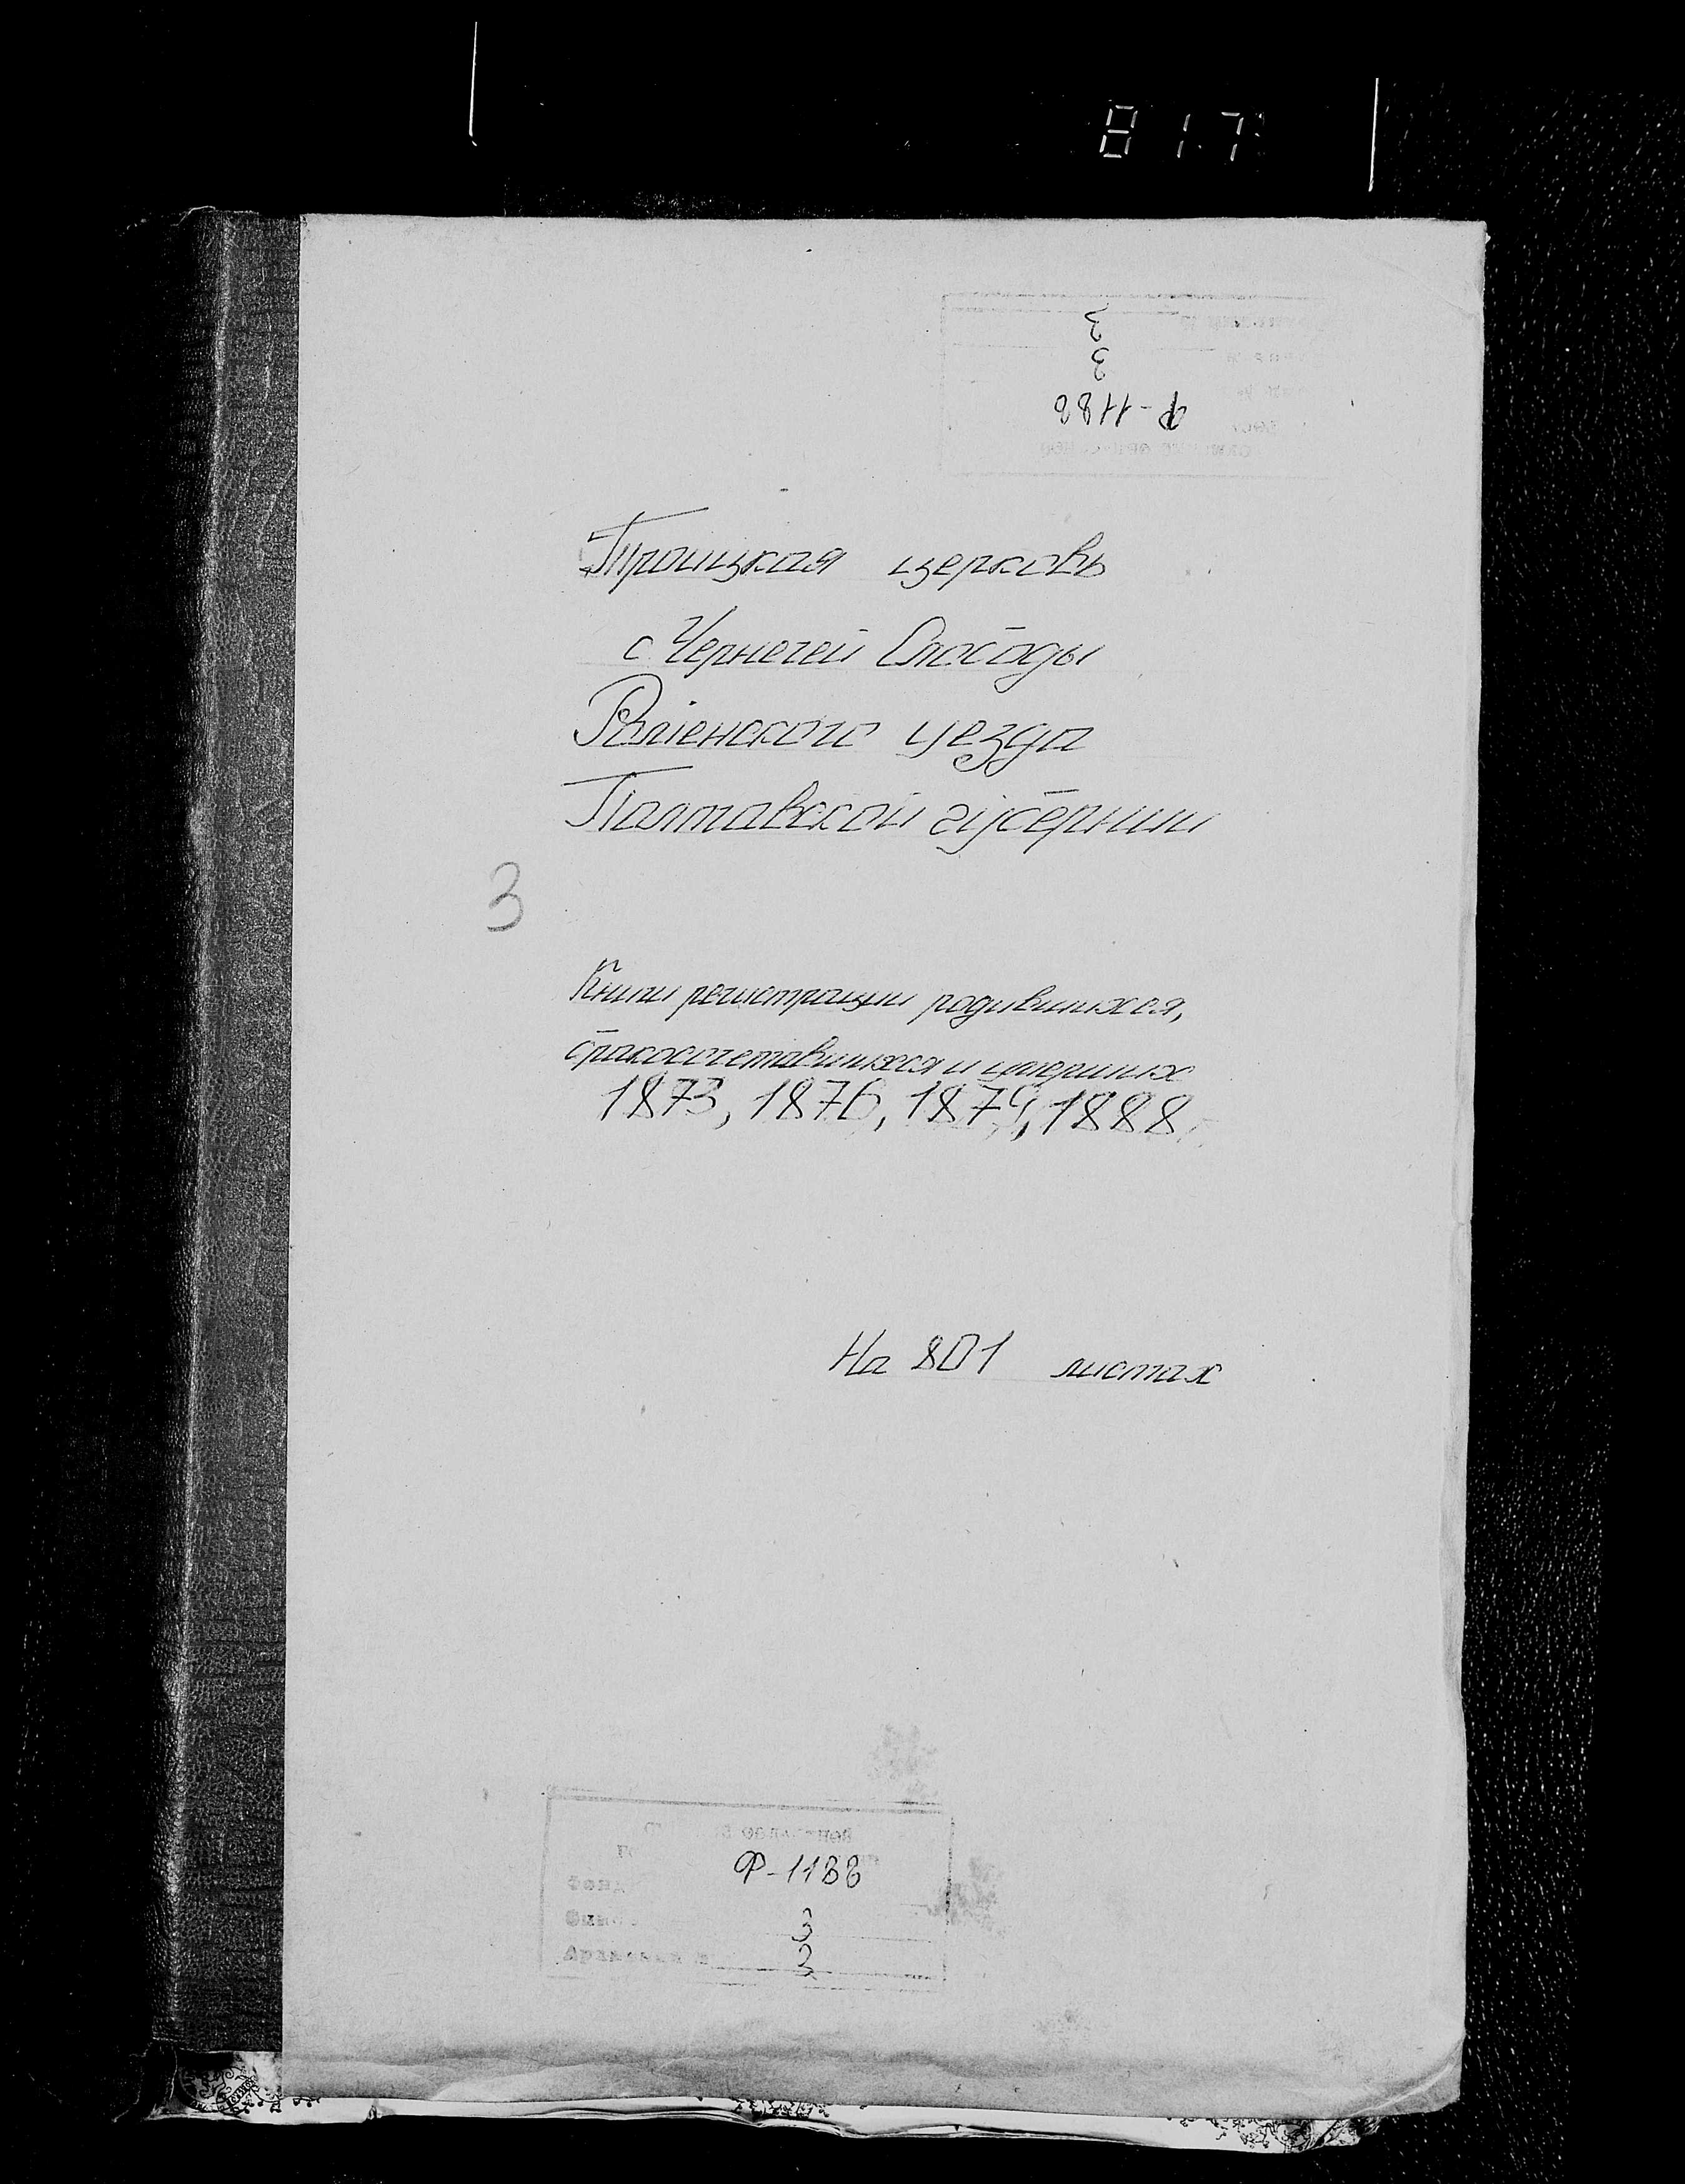 817
3
3
Ф-1188
Троицкая церковь
с Чернечей Слободы
Роменского уезда
Полтавской губернии
3
Книги регистрации родившихся,
бракосочетавшихся и умерших
1873, 1876, 1879, 1888
На 801 листах
Ф-1188
Фонд
3
3